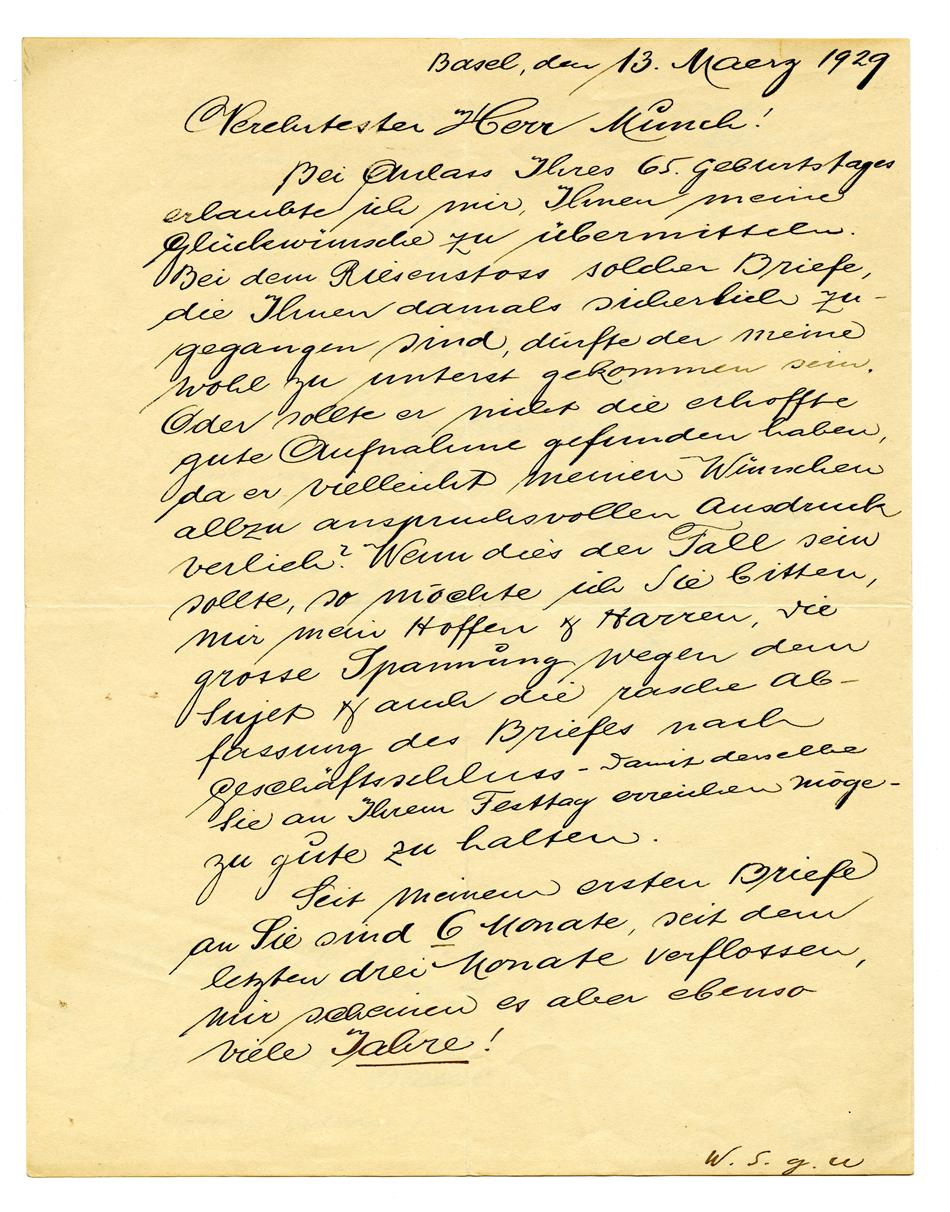 Basel, den 13. Maerz 1929
Verehrtester Herr Munch!
Bei Anlass Ihres 65. Geburtstages
erlaubte ich mir, Ihnen meine
Glückwünsche zu übermitteln.
Bei dem Riesenstoss solcher Briefe,
die Ihnen damals sicherlich zu-
gegangen sind, dürfte der meine
wohl zu unterst gekommen sein.
Oder sollte er nicht die erhoffte
gute Aufnahme gefunden haben,
da er vielleicht meinen Wünschen
allzu anspruchsvollen Ausdruck
verlieh? Wenn dies der Fall sein
sollte, so möchte ich Sie bitten,
mir mein Hoffen & Harren, die
grosse Spannung wegen dem
Sujet & auch die rasche Ab-
fassung des Briefes nach
Geschäftsschluss - damit derselbe
Sie an Ihrem Festtag erreichen möge -
zu gute zu halten.
Seit meinem ersten Briefe
an Sie sind 6 Monate, seit dem
letzten drei Monate verflossen,
mir scheinen es aber ebenso
viele Jahre!
W. S. g. u